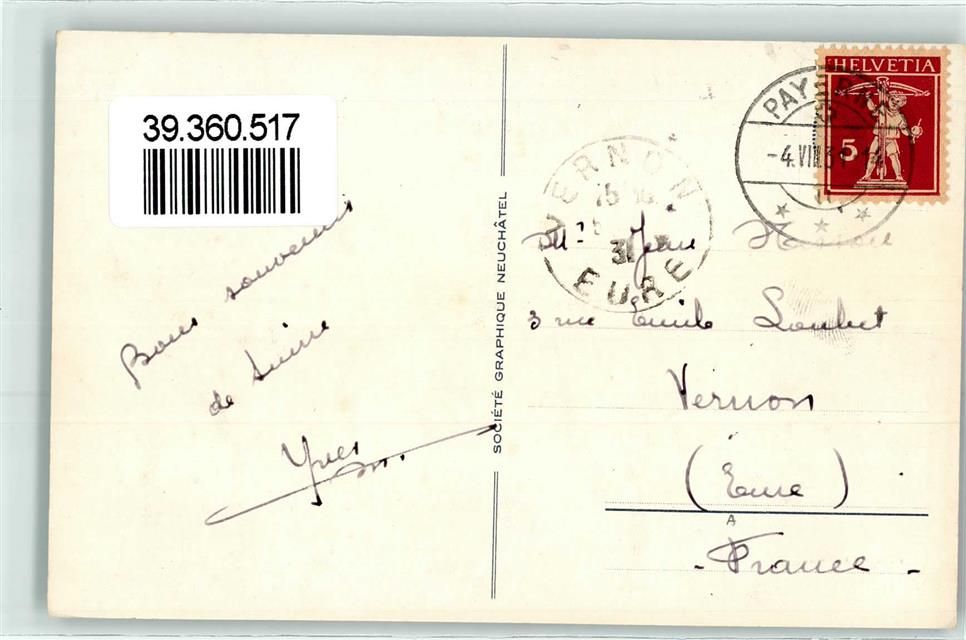 39.360.517
Bons souvenirs
de Suisse
Yves
SOCIÉTÉ GRAPHIQUE NEUCHÂTEL
HELVETIA
5
PAYERNE
-4.VIII.31-
VERNON
31
EURE
Mr Jean
3 rue Emile Loubet
Vernon
(Eure)
A
- France -